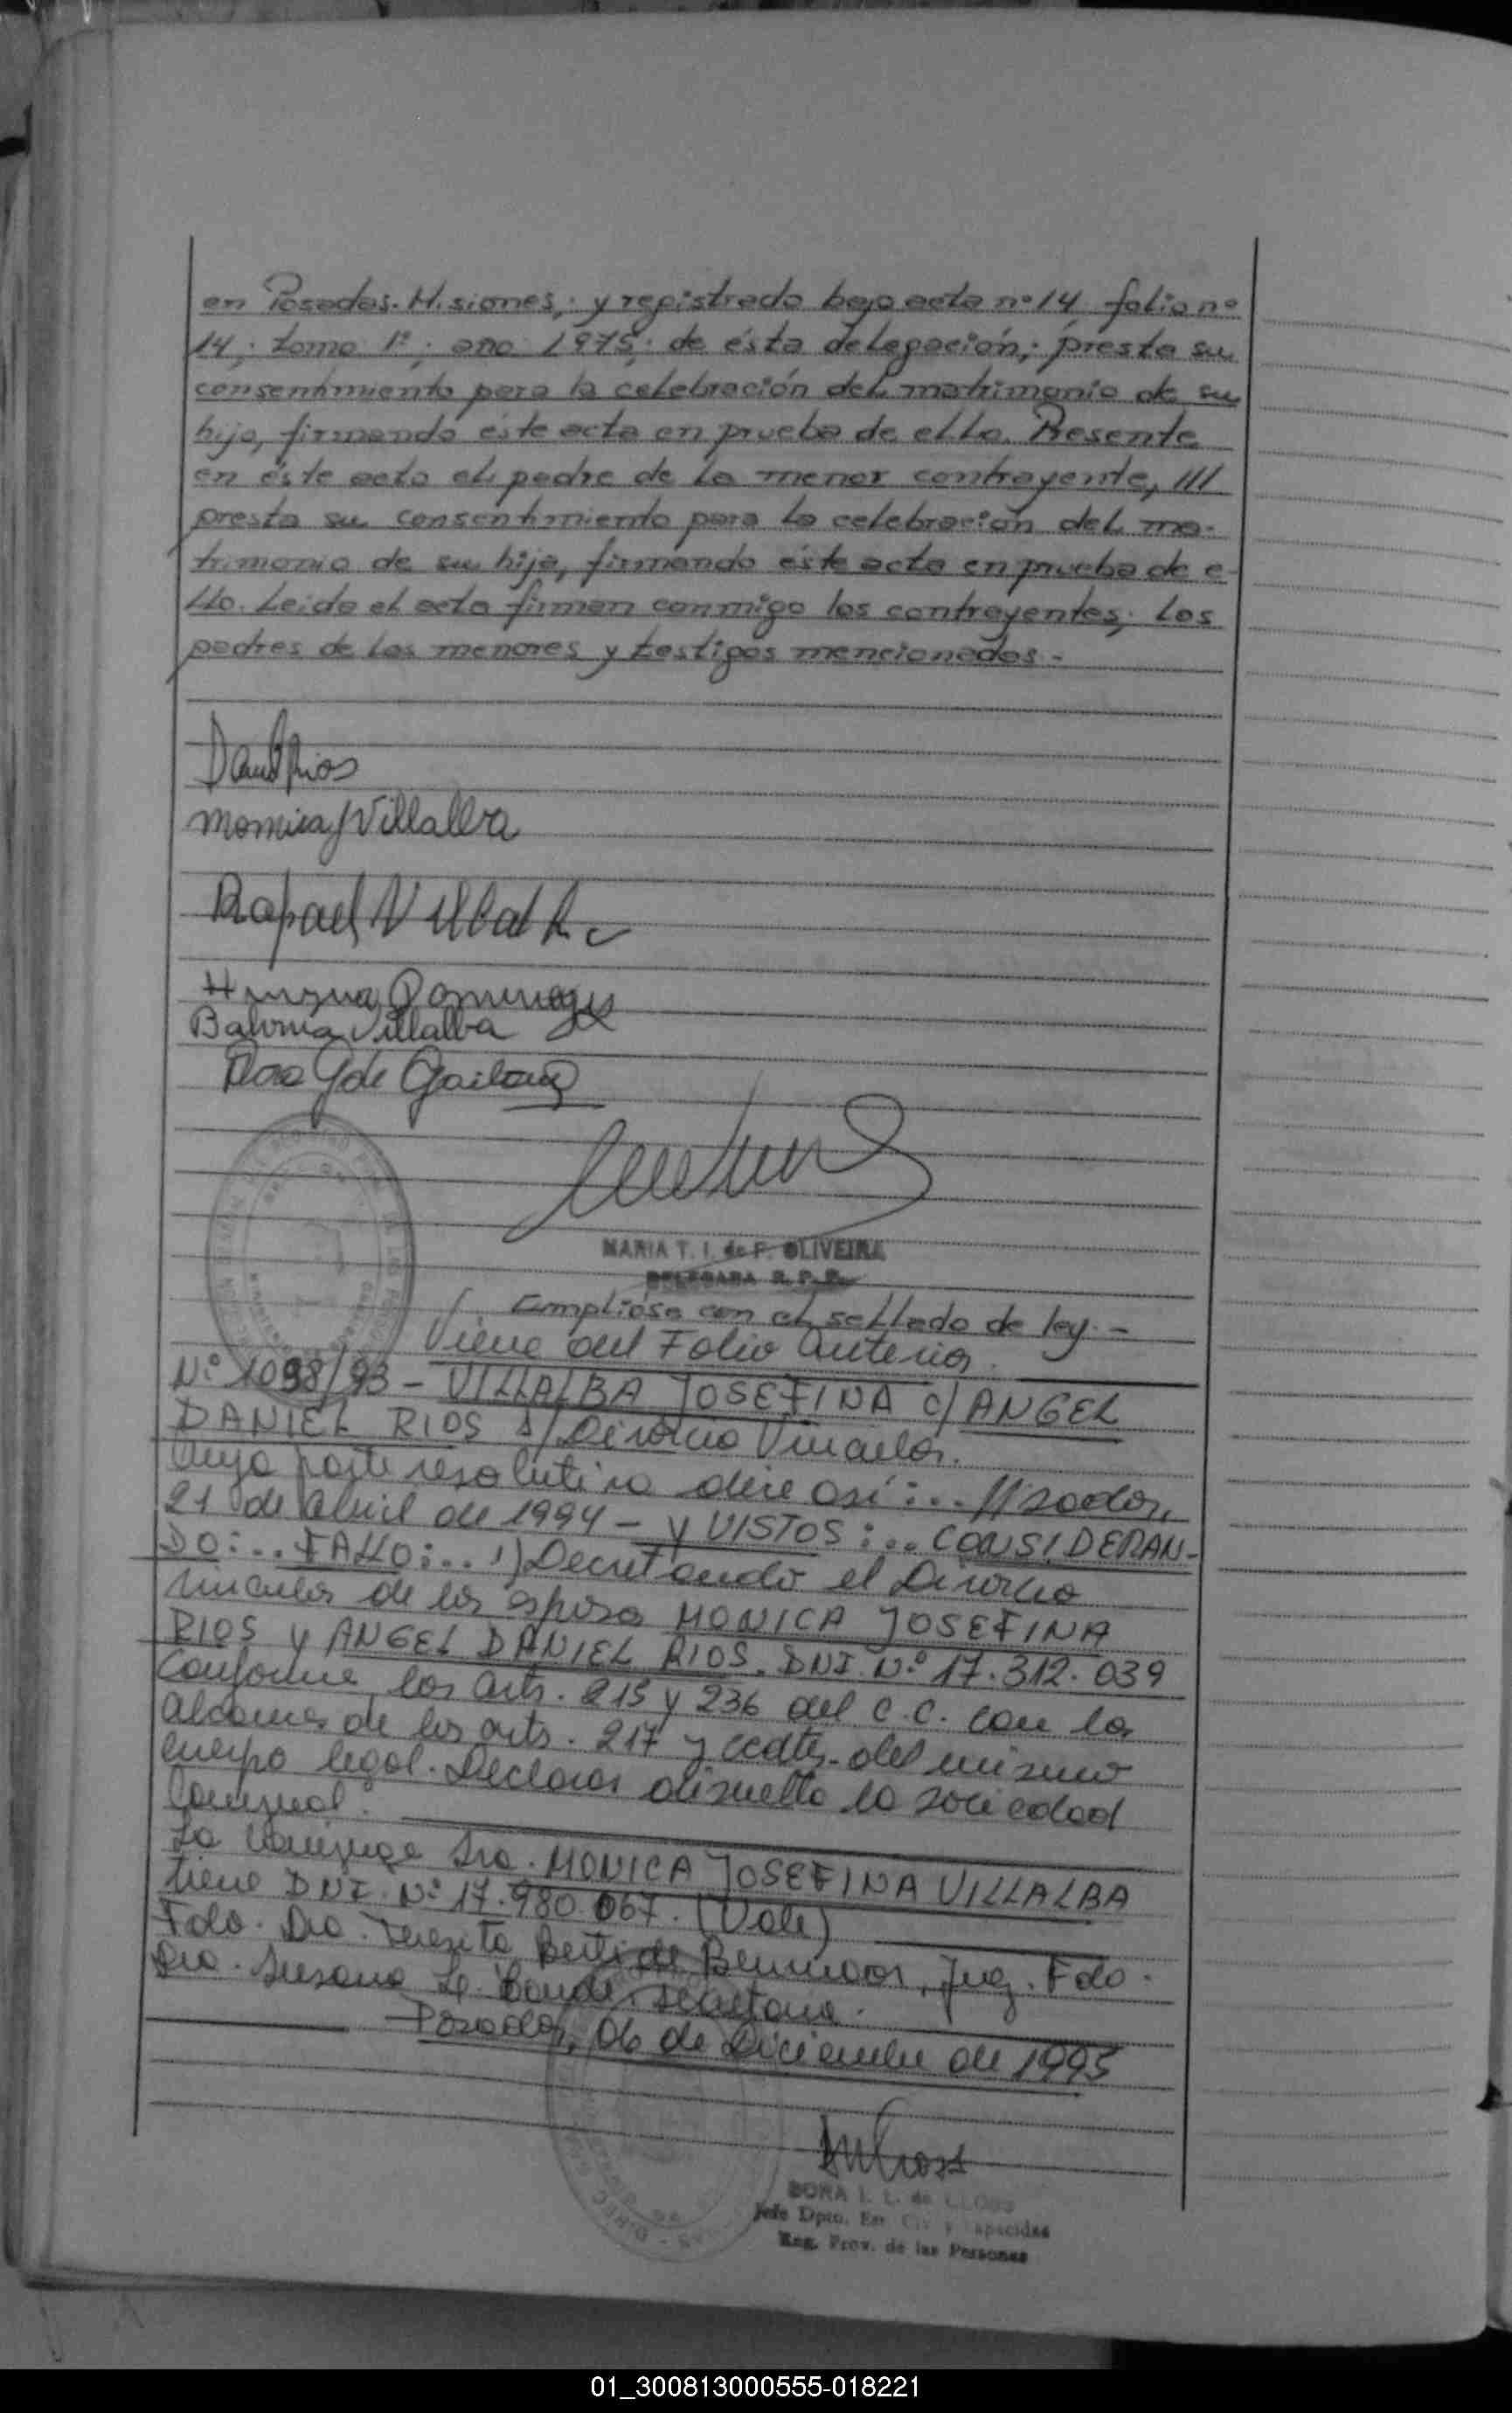 en Posadas. Misiones; y registrado bajo acta nº 14 folio nº
14; tomo 1º; año 1975; de ésta delegación; presta su
consentimiento para la celebración del matrimonio de su
hijo, firmando este acta en prueba de ello. Presente
en éste acto el padre de la menor contrayente, ///
presta su consentimiento para la celebración del ma-
trimonio de su hija, firmando éste acta en prueba de e-
llo. Leida el acta firman conmigo los contrayentes; los
padres de los menores y testigos mencionados -
Daniel Rios
Monica J Villalba
Rafael Villalba
Dominguez
Villalba
MARIA T. I. de F. OLIVEIRA
DELEGADA R. P. P.
Empliose con el sellado de ley. -
Viene del Folio anterior.
Nº 1098/93 - VILLALBA JOSEFINA c/ ANGEL
DANIEL RIOS s/ Divorcio Vincular.
Cuya parte resolutiva dice así:.. //sadas,
21 de abril de 1994 - y VISTOS:... CONSIDERAN-
DO:.. FALLO:.. 1) Decretando el Divorcio
vincular de los esposos MONICA JOSEFINA
RIOS y ANGEL DANIEL RIOS. DNI. Nº 17.312.039
conforme los arts. 215 y 236 del C.C. con los
alcances de los arts. 217 y ccdts. del mismo
cuerpo legal. Declarar disuelta la sociedad
conyugal.
La conyuge Sra. MONICA JOSEFINA VILLALBA
tiene DNI. Nº 17.980.067. (Vale)
Fdo. Dra. Teresita Juez. Fdo.
Dra. Susana secretaria.
Posadas, 06 de Diciembre de 1995
DORA I. L. de LLOSS
Jefe Dpto. Est. Civ. y Capacidad
Reg. Prov. de las Personas
01_300813000555-018221